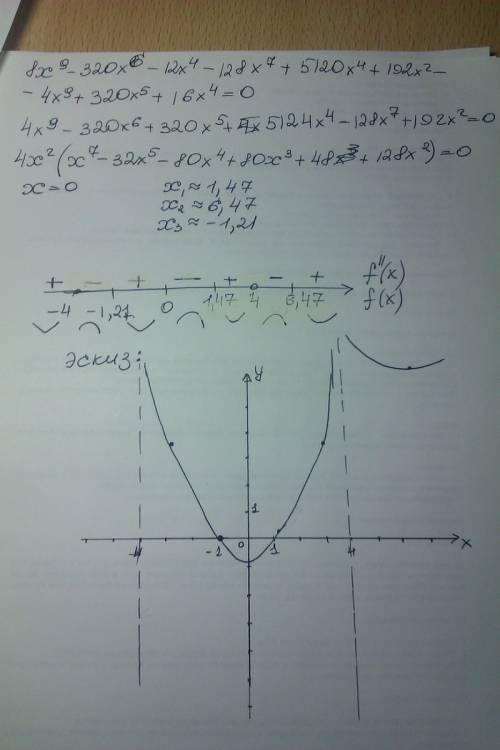 8x⁹ - 320x⁶ - 12x⁴ - 128x⁷ + 5120x⁴ + 192x² -
- 4x⁹ + 320x⁵ + 16x⁴ = 0
4x⁹ - 320x⁶ + 320x⁵ + 5124x⁴ - 128x⁷ + 192x² = 0
4x² (x⁷ - 32x⁵ - 80x⁴ + 80x³ + 48x³ + 128x²) = 0
x = 0 x₁ ≈ 1,47
x₂ ≈ 6,47
x₃ ≈ -1,21
+ - + - + - + f''(x)
-4 -1,21 0 1,47 4 6,47 f(x)
эскиз:
y
1
-4 -1 0 1 4 x